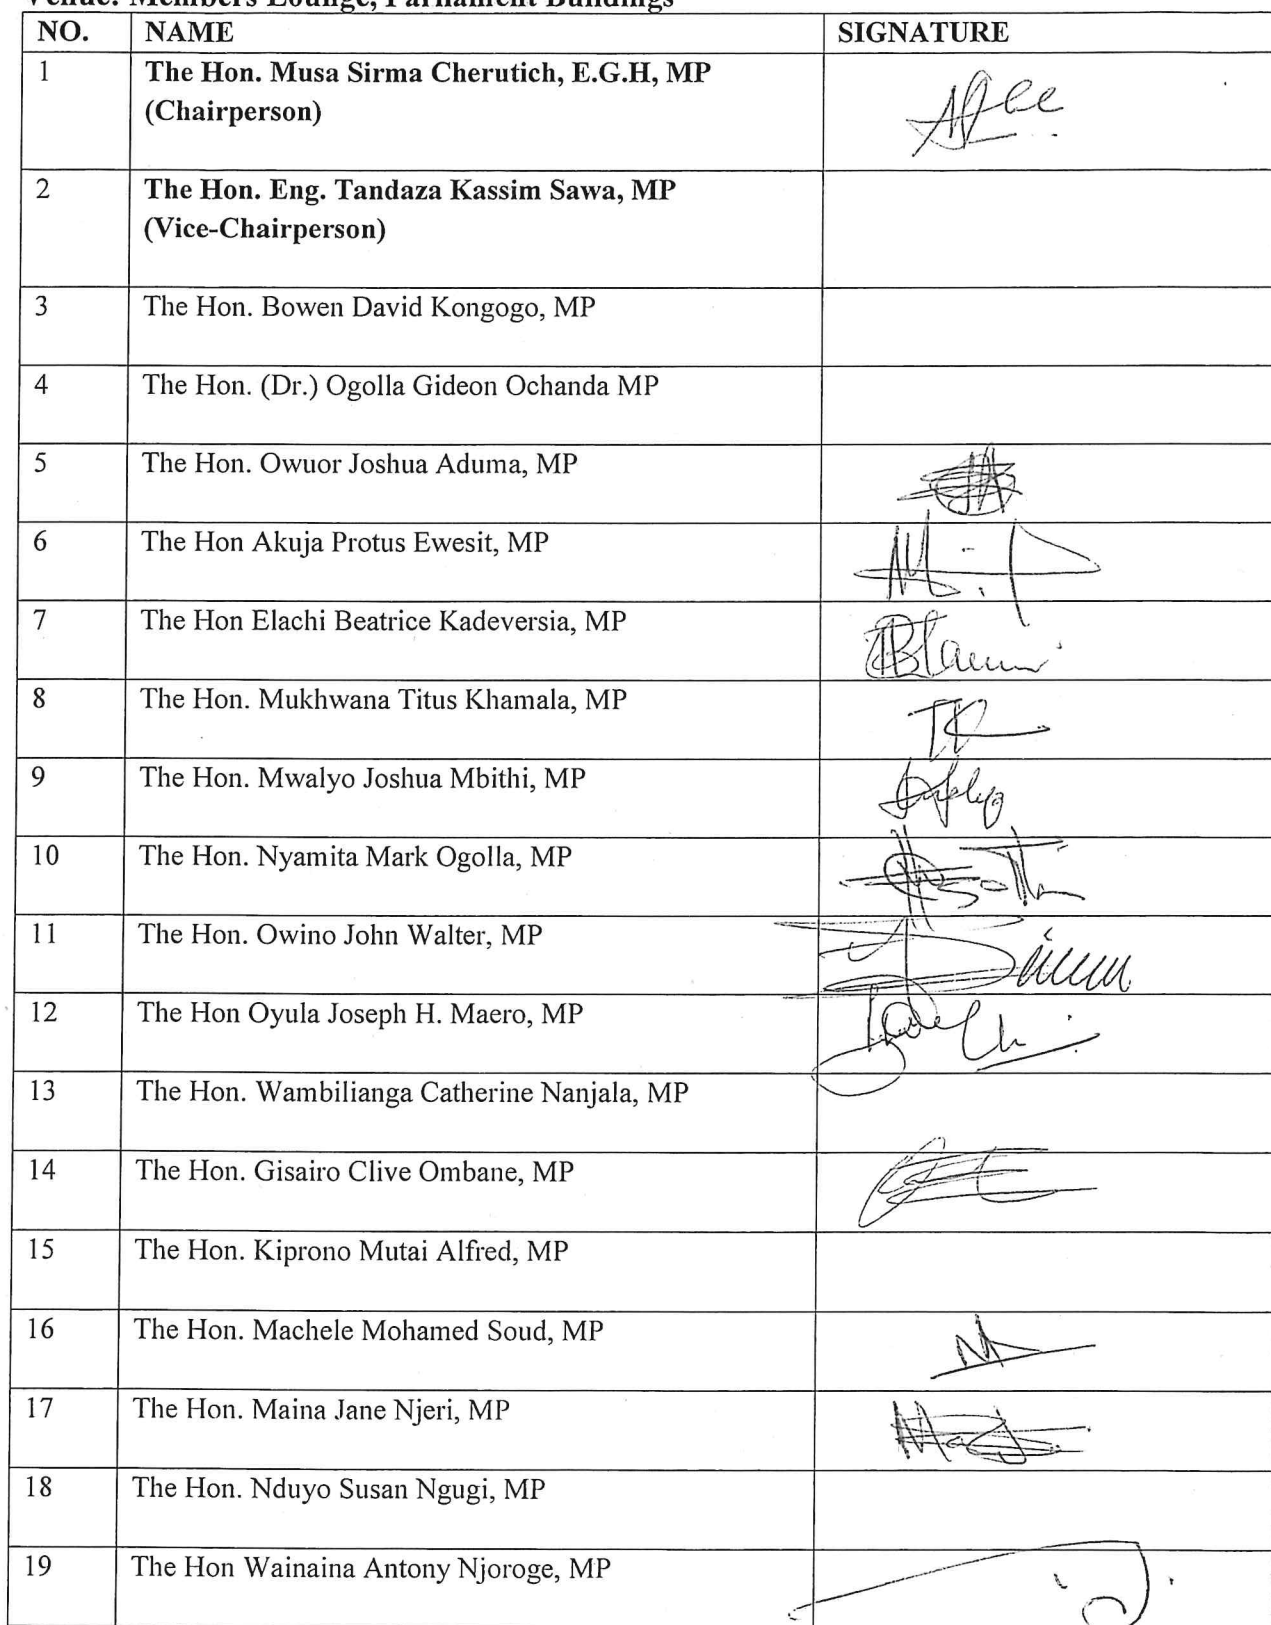 Venue: Members Lounge, Parliament Buildings
NO. NAME SIGNATURE
1 The Hon. Musa Sirma Cherutich, E.G.H, MP
(Chairperson)
2 The Hon. Eng. Tandaza Kassim Sawa, MP
(Vice-Chairperson)
3 The Hon. Bowen David Kongogo, MP
4 The Hon. (Dr.) Ogolla Gideon Ochanda MP
5 The Hon. Owuor Joshua Aduma, MP
6 The Hon Akuja Protus Ewesit, MP
7 The Hon Elachi Beatrice Kadeversia, MP
8 The Hon. Mukhwana Titus Khamala, MP
9 The Hon. Mwalyo Joshua Mbithi, MP
10 The Hon. Nyamita Mark Ogolla, MP
11 The Hon. Owino John Walter, MP
12 The Hon Oyula Joseph H. Maero, MP
13 The Hon. Wambilianga Catherine Nanjala, MP
14 The Hon. Gisairo Clive Ombane, MP
15 The Hon. Kiprono Mutai Alfred, MP
16 The Hon. Machele Mohamed Soud, MP
17 The Hon. Maina Jane Njeri, MP
18 The Hon. Nduyo Susan Ngugi, MP
19 The Hon Wainaina Antony Njoroge, MP